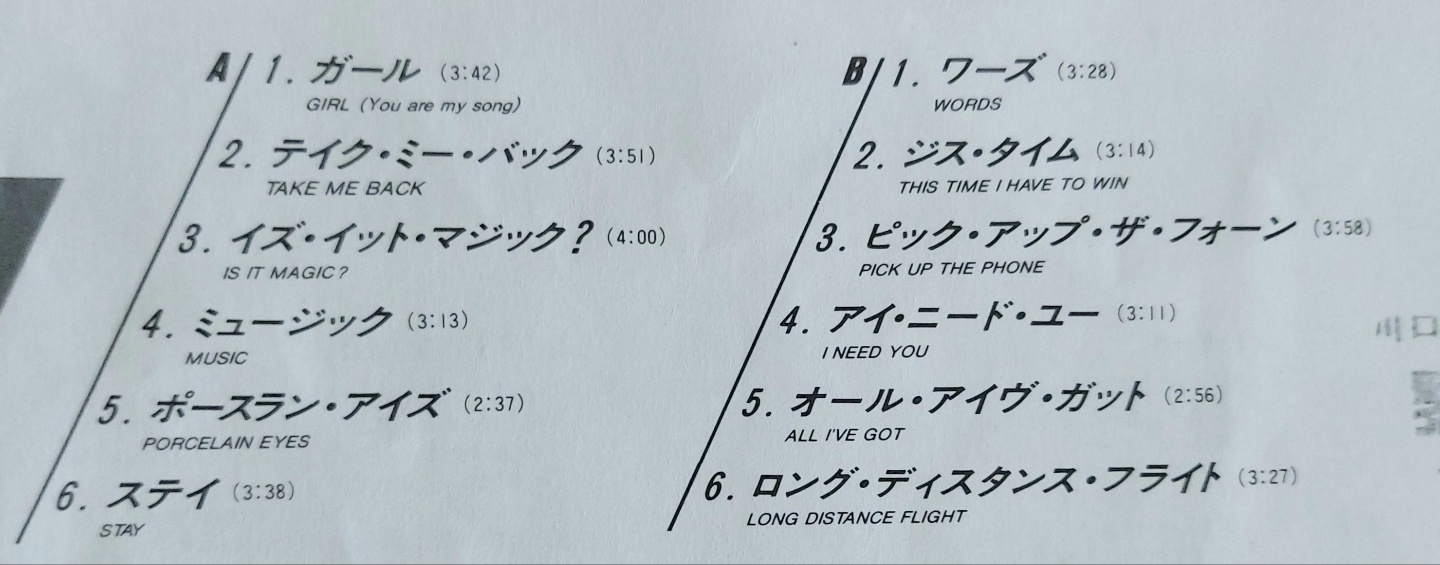 A/ 1. ガール (3:42)
GIRL (You are my song)
2. テイク・ミー・バック (3:51)
TAKE ME BACK
3. イズ・イット・マジック? (4:00)
IS IT MAGIC?
4. ミュージック (3:13)
MUSIC
5. ポースラン・アイズ (2:37)
PORCELAIN EYES
6. ステイ (3:38)
STAY
B/ 1. ワーズ (3:28)
WORDS
2. ジス・タイム (3:14)
THIS TIME I HAVE TO WIN
3. ピック・アップ・ザ・フォーン (3:58)
PICK UP THE PHONE
4. アイ・ニード・ユー (3:11)
I NEED YOU
5. オール・アイヴ・ガット (2:56)
ALL I'VE GOT
6. ロング・ディスタンス・フライト (3:27)
LONG DISTANCE FLIGHT